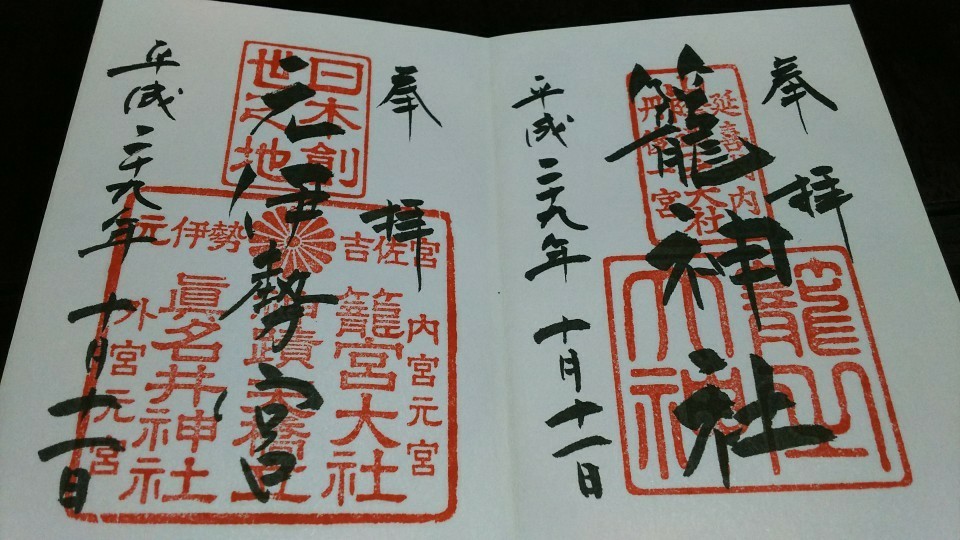 奉拝
籠神社
平成二十九年十月十一日
延喜式内
大社
丹後一宮
籠之大神
奉拝
元伊勢宮
平成二十九年十月十一日
日本創
世之地
元伊勢
吉佐宮
内宮元宮
籠宮大社
眞名井神社
外宮元宮